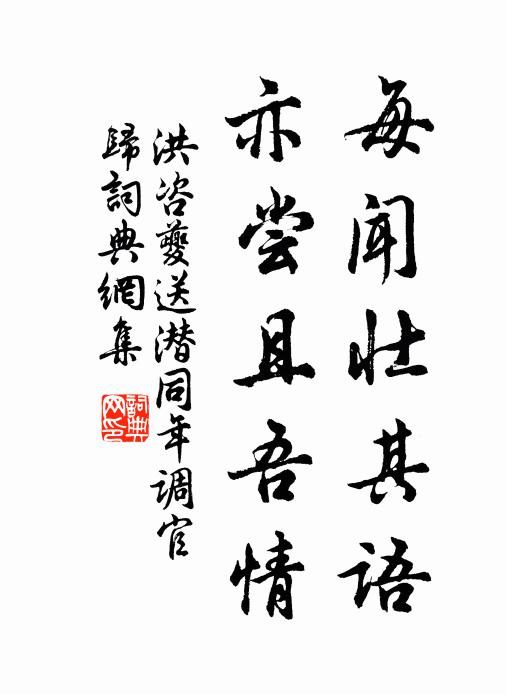 每闻壮其語
亦尝且吾情
洪咨夔送潜同年调官
歸詞典網集
詞典网印